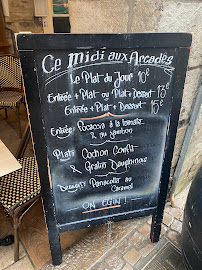 Ce Midi aux Arcades
Le Plat du Jour 10€
Entrée + Plat ou Plat + Dessert 13€
Entrée + Plat + Dessert 15€
Entrée: à la tomate
& au jambon
Plat: Cochon Confit
& Gratin Dauphinois
Dessert: Panacotta au
Caramel